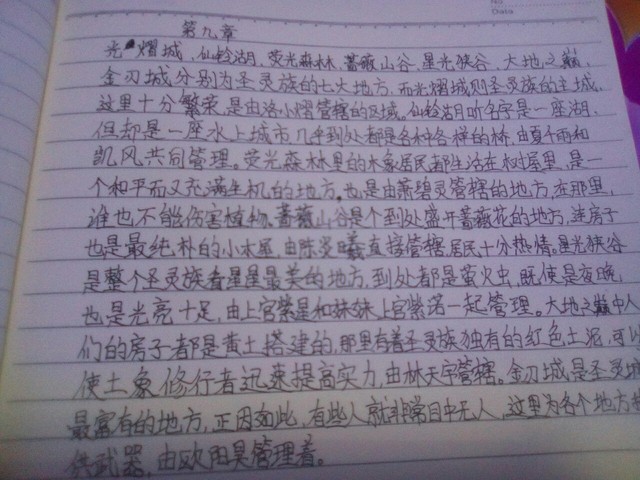 No
Data
第九章
光熠城、仙铃湖、荧光森林、蔷薇山谷、星光侠谷、大地之巅、
金刃城分别为圣灵族的七大地方,而光熠城则圣灵族的主城,
这里十分繁荣,是由洛小熠管辖的区域。仙铃湖听名字是一座湖,
但却是一座水上城市,几乎到处都是各种各样的桥,由夏个雨和
凯风共同管理。荧光森林里的木象居民都生活在树屋里,是一
个和平而又充满生机的地方,也是由萧碧灵管辖的地方,在那里,
谁也不能伤害植物。蔷薇山谷是个到处盛开蔷薇花的地方,连房子
也是最纯朴的小木屋,由陈炎曦直接管辖,居民十分热情。星光狭谷
是整个圣灵族看星星最美的地方,到处都是萤火虫,既使是夜晚
也是光亮十足,由上官紫星和妹妹上官紫诺一起管理。大地之巅中人
们的房子都是黄土搭建的,那里有着圣灵族独有的红色土泥,可以
使土象修行者迅速提高实力,由林天宇管辖。金刃城是圣灵城
最富有的地方,正因如此,有些人就非常目中无人,这里为各个地方提
供武器,由欧阳昊管理着。